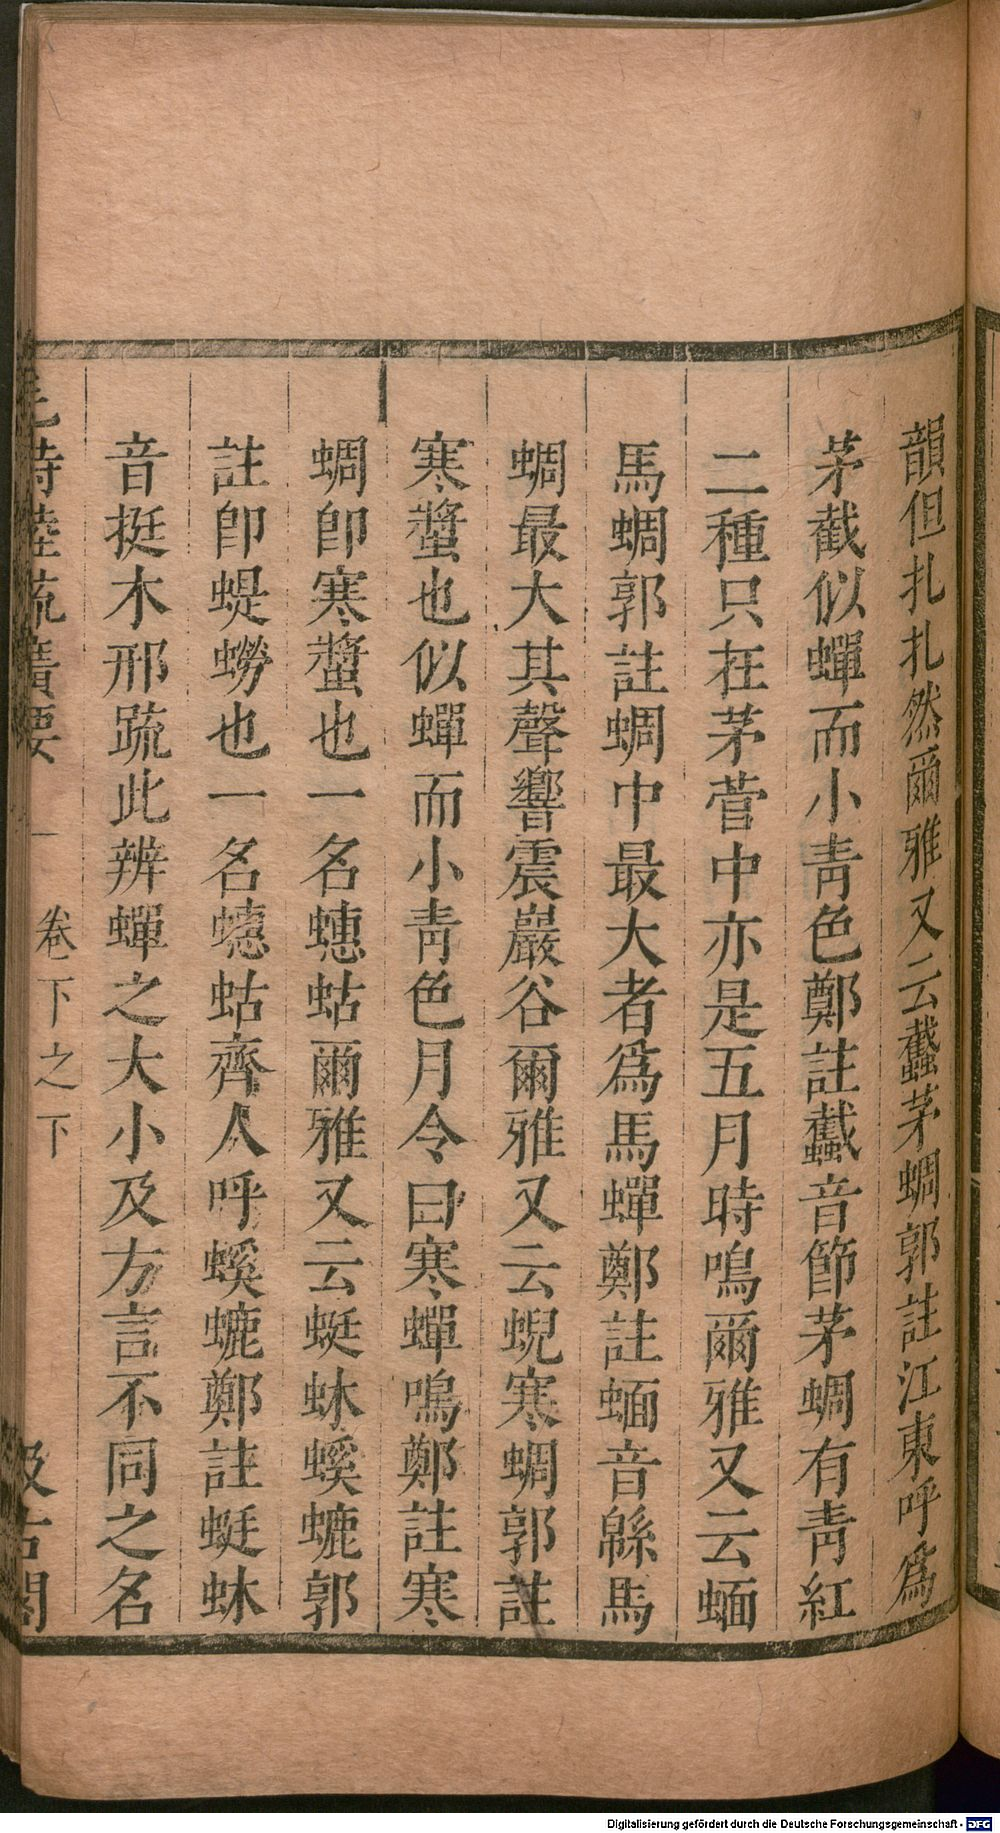 韻但扎扎然爾雅又云蠽茅蜩郭註江東呼爲
茅截似蟬而小青色鄭註蠽音節茅蜩有青紅
二種只在茅菅中亦是五月時鳴爾雅又云蝒
馬蜩郭註蜩中最大者爲馬蟬鄭註蝒音緜馬
蜩最大其聲響震巖谷爾雅又云蜺寒蜩郭註
寒螿也似蟬而小青色月令曰寒蟬鳴鄭註寒
蜩卽寒螿也一名蟪蛄爾雅又云蜓蚞螇螰郭
註卽蝭蟧也一名蟪蛄齊人呼螇螰鄭註蜓蚞
音挺木邢疏此辨蟬之大小及方言不同之名
毛詩陸疏廣要 卷下之下 汲古閣
Digitalisierung gefördert durch die Deutsche Forschungsgemeinschaft - DFG